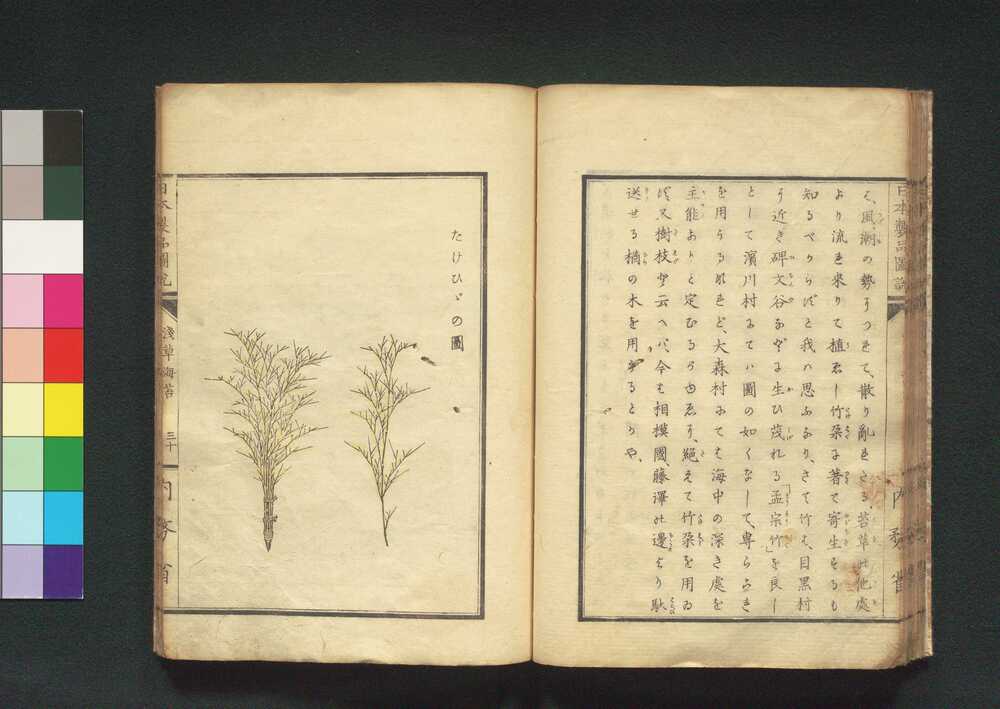 日本製品圖説
内務省
く、風潮の勢ゐつきて、散り亂きさる、苔草の他處
より流き來りて植ゑし竹朶に著て寄生そるも
知るべからばと我ハ思ふなり、さて竹も、目黒村
近き碑文谷などに生ひ茂れる「孟宗竹」を良し
として濱川村にてハ圖の如くなして、専ら
を用うるなれど、大森村にても海中の深き處を
主能ありと定むるらゆゑり、絕えて竹朶を用ゐ
又樹枝と云へバ、今も相摸國、藤澤の邊より駄
送せる楢の木を用るとや、
たけひゞの圖
日本製品圖説
淺草海苔
三十
内務省